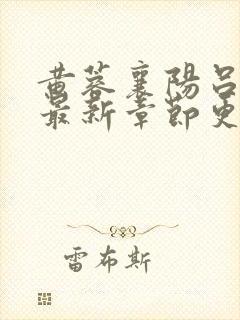 黄蓉襄阳吕
最新章節更
雷布斯